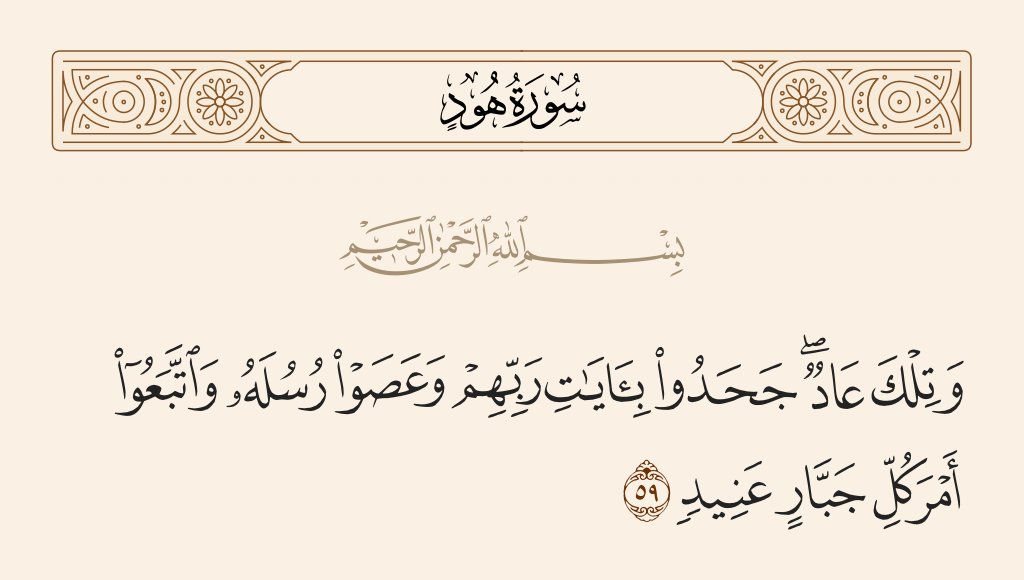 سُورَةُ هُودٍ
بِسْمِ ٱللَّهِ ٱلرَّحْمَٰنِ ٱلرَّحِيمِ
وَتِلْكَ عَادٌ ۖ جَحَدُوا۟ بِـَٔايَٰتِ رَبِّهِمْ وَعَصَوْا۟ رُسُلَهُۥ وَٱتَّبَعُوٓا۟
أَمْرَ كُلِّ جَبَّارٍ عَنِيدٍ ٥٩